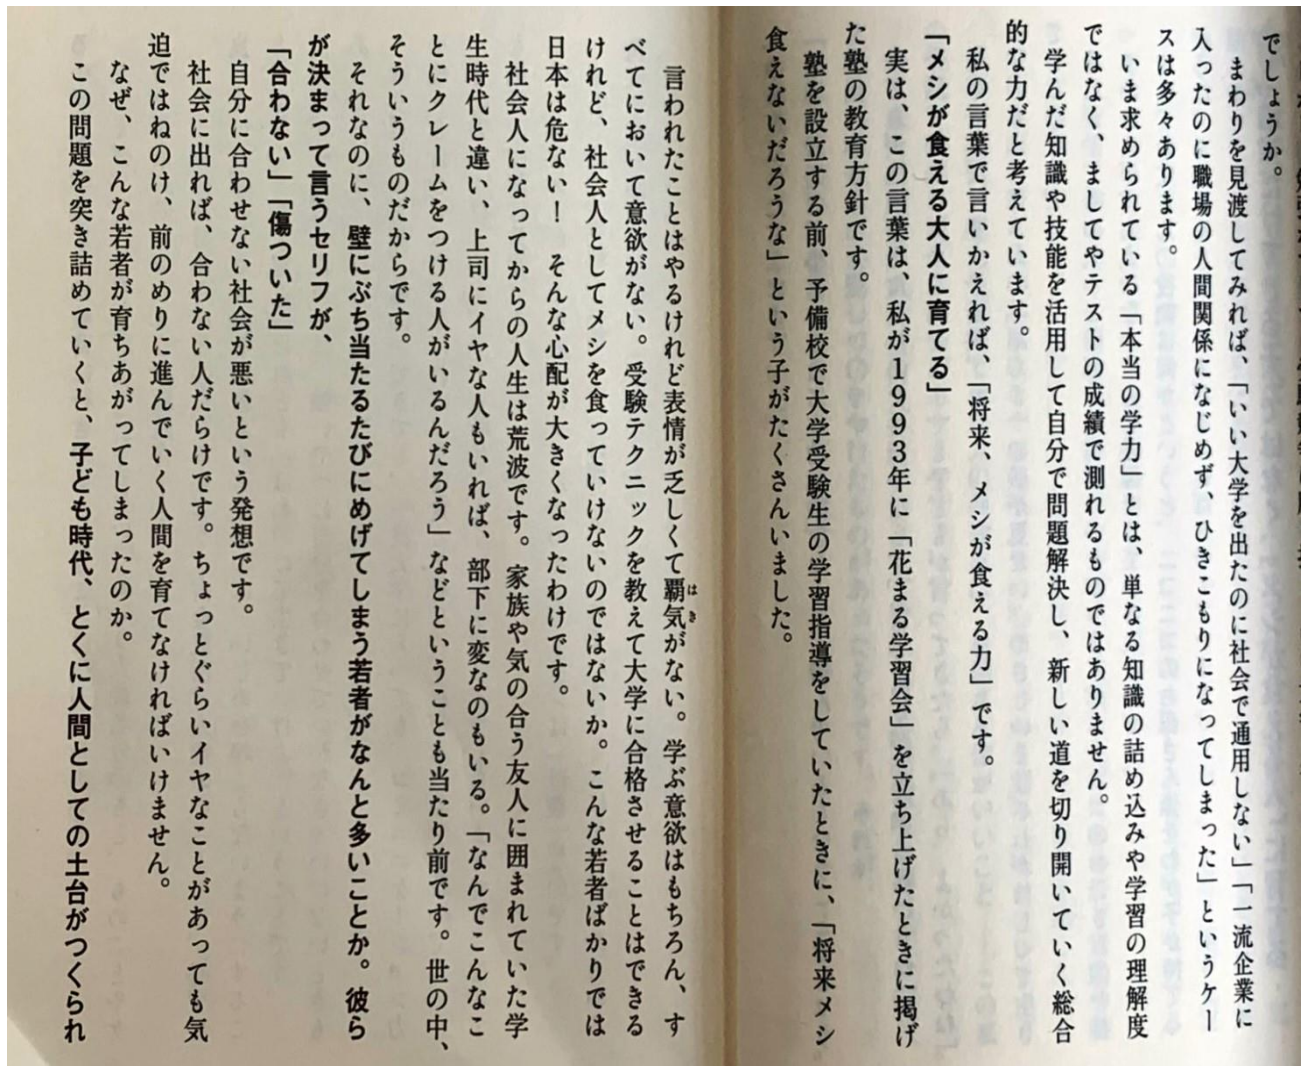 でしょうか。
まわりを見渡してみれば、「いい大学を出たのに社会で通用しない」「一流企業に
入ったのに職場の人間関係になじめず、ひきこもりになってしまった」というケー
スは多々あります。
いま求められている「本当の学力」とは、単なる知識の詰め込みや学習の理解度
ではなく、ましてやテストの成績で測れるものではありません。
学んだ知識や技能を活用して自分で問題解決し、新しい道を切り開いていく総合
的な力だと考えています。
私の言葉で言いかえれば、「将来、メシが食える力」です。
「メシが食える大人に育てる」
実は、この言葉は、私が1993年に「花まる学習会」を立ち上げたときに掲げ
た塾の教育方針です。
塾を設立する前、予備校で大学受験生の学習指導をしていたときに、「将来メシ
食えないだろうな」という子がたくさんいました。
言われたことはやるけれど表情が乏しくて覇気がない。学ぶ意欲はもちろん、す
はき
べてにおいて意欲がない。受験テクニックを教えて大学に合格させることはできる
けれど、社会人としてメシを食っていけないのではないか。こんな若者ばかりでは
日本は危ない！ そんな心配が大きくなったわけです。
社会人になってからの人生は荒波です。家族や気の合う友人に囲まれていた学
生時代と違い、上司にイヤな人もいれば、部下に変なのもいる。「なんでこんなこ
とにクレームをつける人がいるんだろう」などということも当たり前です。世の中、
そういうものだからです。
それなのに、壁にぶち当たるたびにめげてしまう若者がなんと多いことか。彼ら
が決まって言うセリフが、
「合わない」「傷ついた」
自分に合わせない社会が悪いという発想です。
社会に出れば、合わない人だらけです。ちょっとぐらいイヤなことがあっても気
迫ではねのけ、前のめりに進んでいく人間を育てなければいけません。
なぜ、こんな若者が育ちあがってしまったのか。
この問題を突き詰めていくと、子ども時代、とくに人間としての土台がつくられ